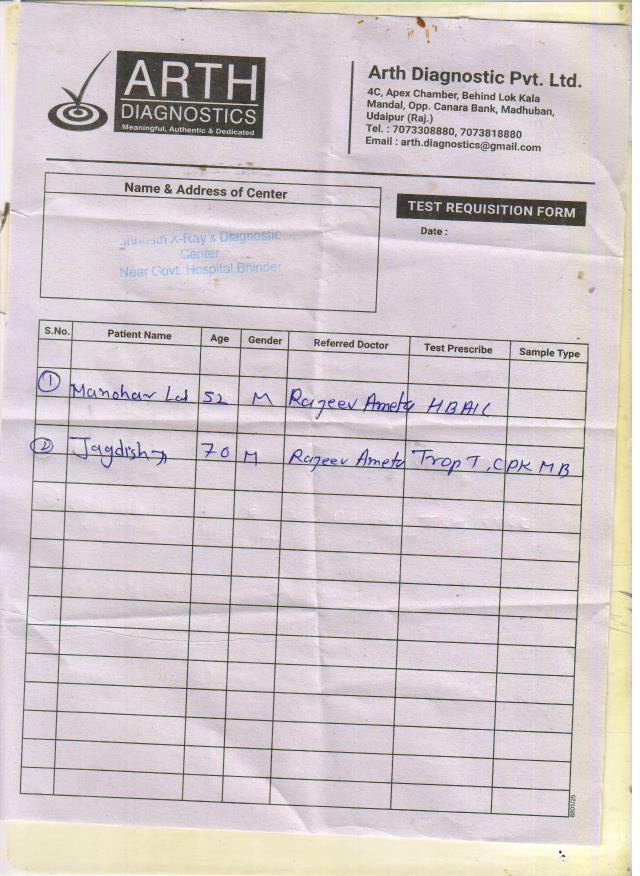 ARTH
DIAGNOSTICS
Meaningful, Authentic & Dedicated
Arth Diagnostic Pvt. Ltd.
4C, Apex Chamber, Behind Lok Kala
Mandal, Opp. Canara Bank, Madhuban,
Udaipur (Raj.)
Tel. : 7073308880, 7073818880
Email : arth.diagnostics@gmail.com
Name & Address of Center
X-Ray & Diagnostic
Center
Near Govt. Hospital, Bhinder
TEST REQUISITION FORM
Date :
S.No. Patient Name Age Gender Referred Doctor Test Prescribe Sample Type
1 Manohar Lal 52 M Rajeev Ameta HBA1C
2 Jagdish Ji 70 M Rajeev Ameta Trop T, CPK MB